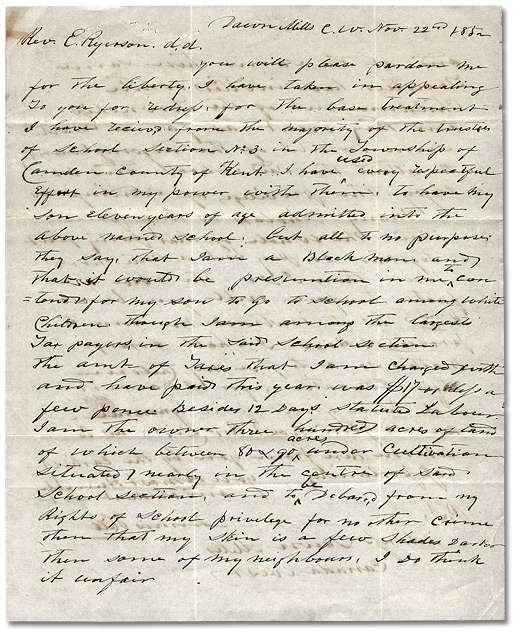 Dawn Mills C.W. Nov. 22nd 1852
Rev. E. Ryerson. d,d.
you will please pardon me
for the liberty I have taken in appealing
to you for redress for the base treatment
I have recived from the majority of the trustees
of School Section No 3 in the Township of
Camden County of Kent I have used every respectful
Effort in my power with them to have my
Son Eleven years of age admitted into the
above named School: but all to no purpose;
they say, that I am a Black man and
that it would be presumtion in me to con
=tend for my son to go to School among white
Children though I am among the largests
Tax payers in the said School Section
the amt of Taxes that I am charged with
and have paid this year was $17 or less a
few pence Besides 12 Days Statute Labour
I am the owner three hundred acres of land
of which between 80 & 90 acres under Cultivation
situated nearly in the centre of said
School Section, and to be Debarred from my
Rights of School privilege for no other Crime
then that my Skin is a few shades darker
then some of my neighbours, I Do think
it unfair